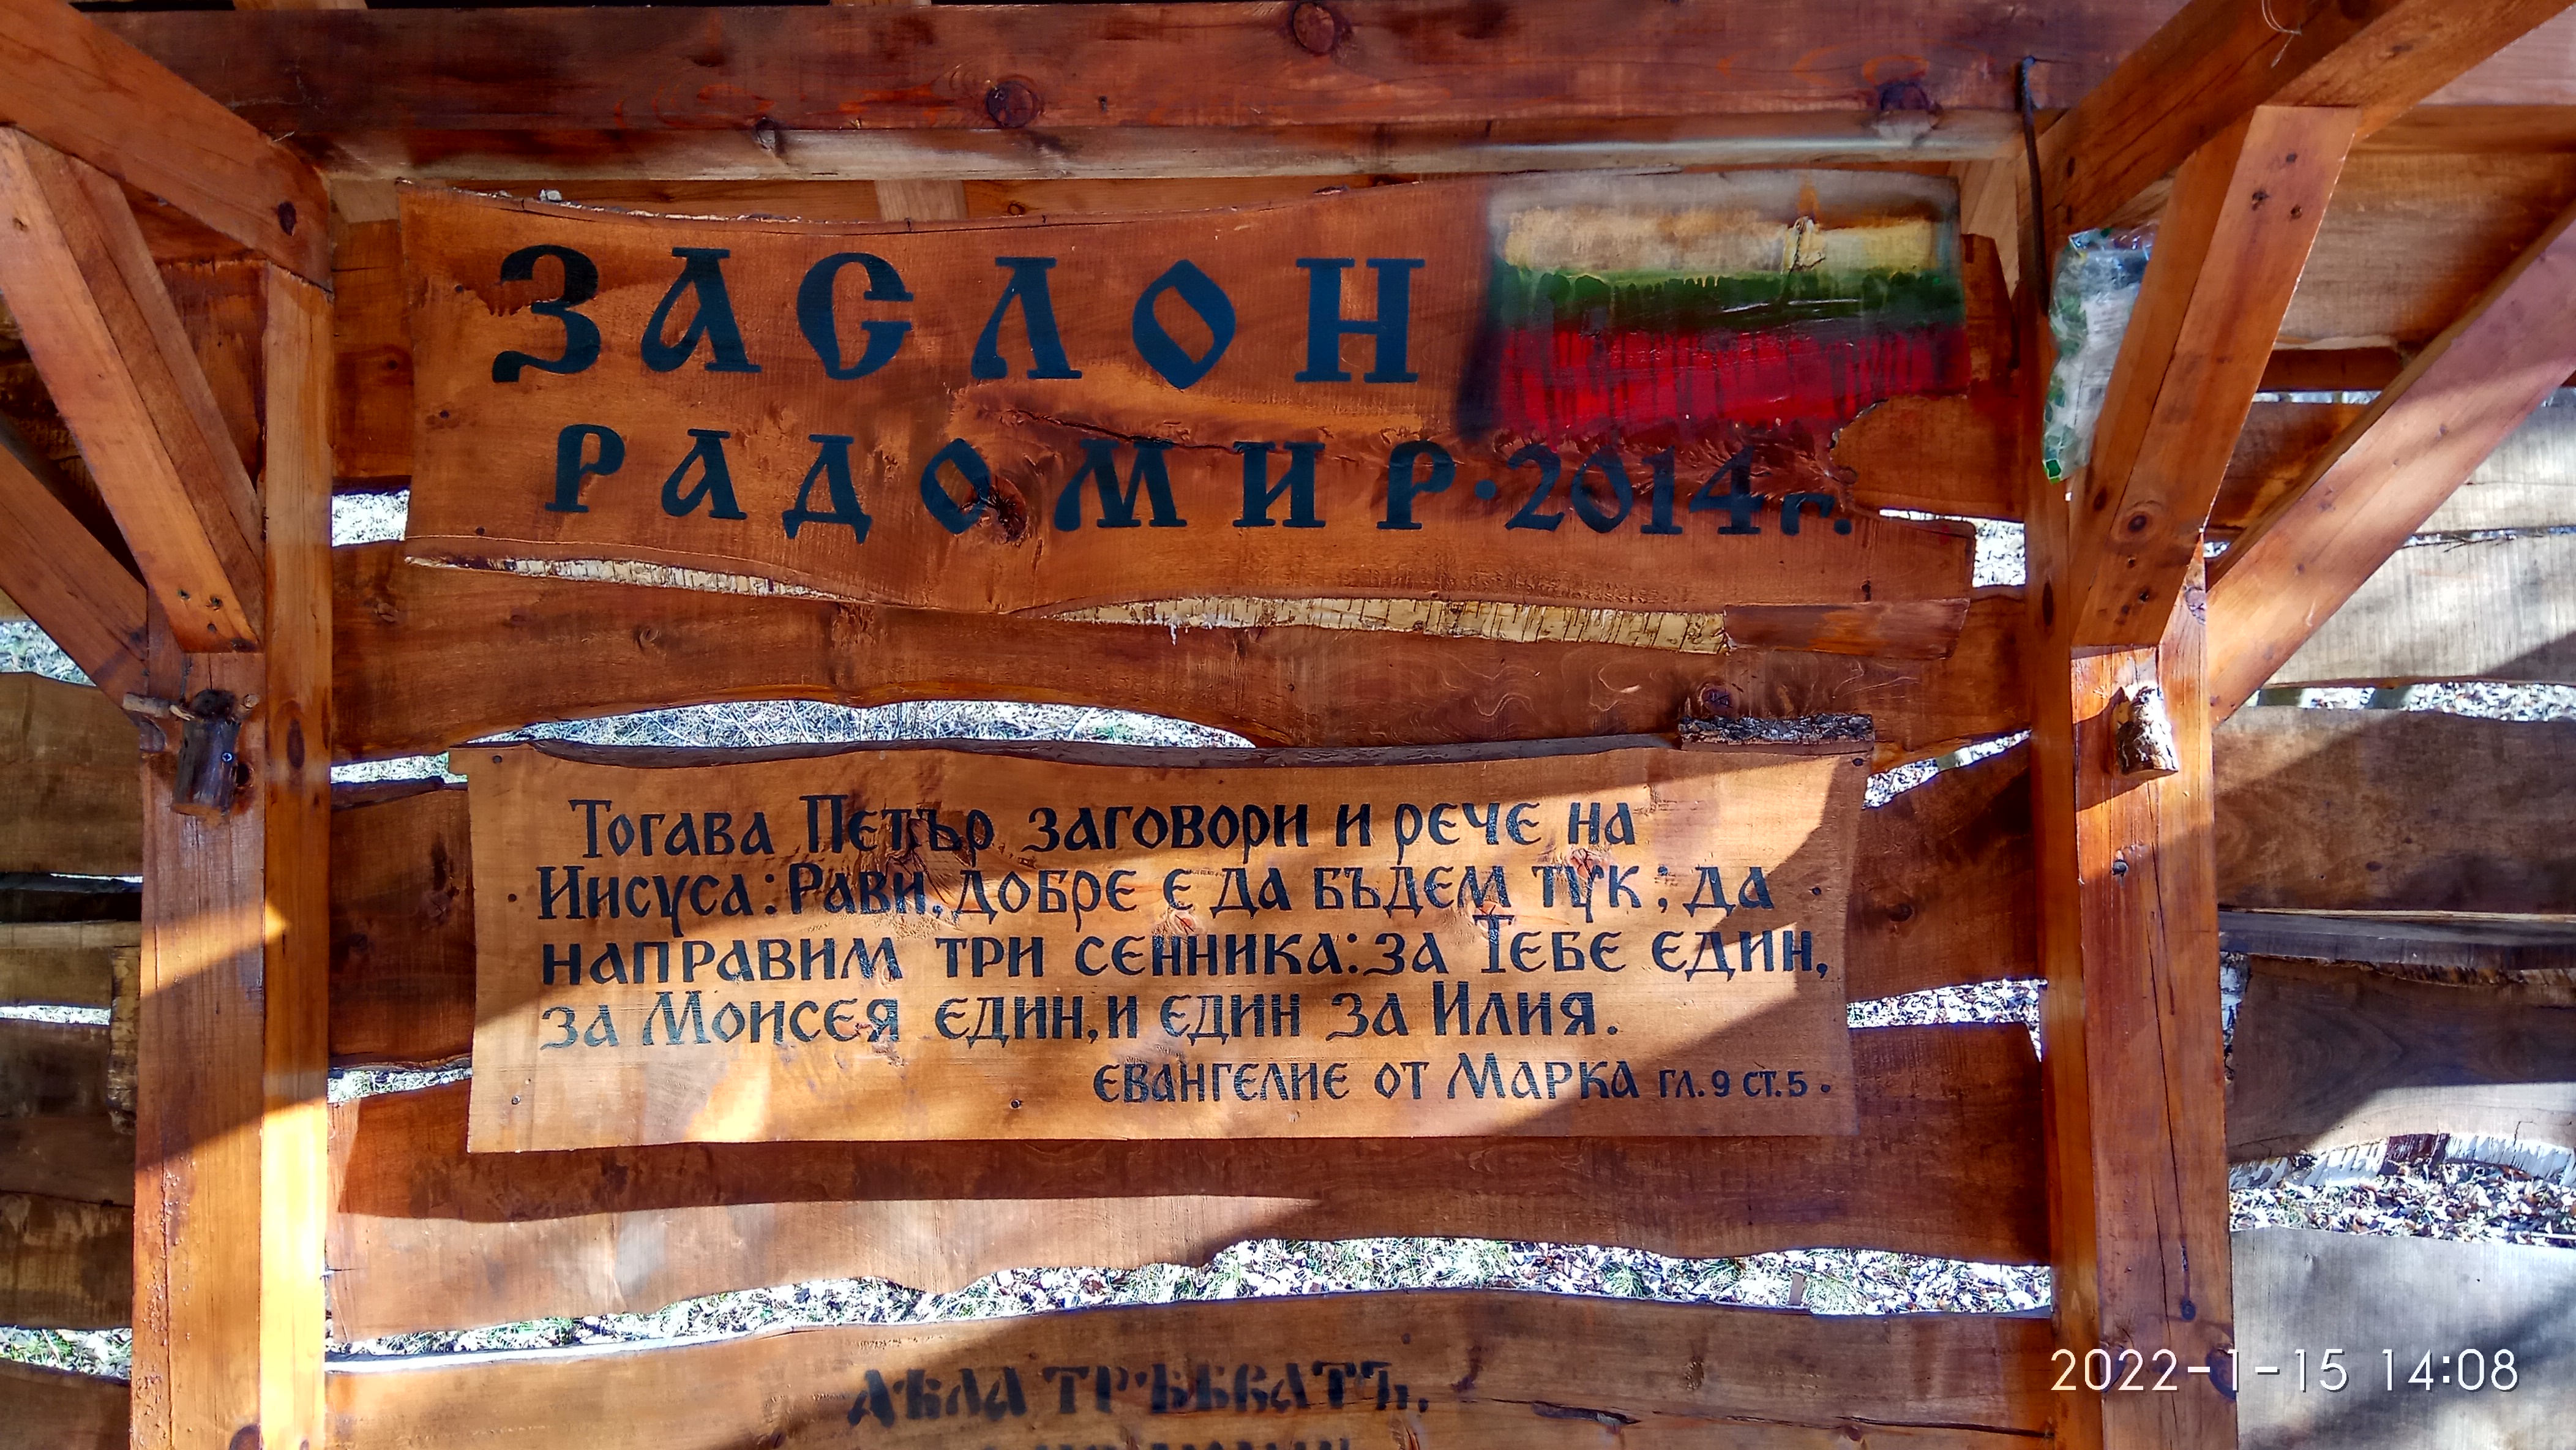 ЗАСЛОН
РАДОМИР·2014 г.
Тогава Петър заговори и рече на
Иисуса: Рави, добре е да бъдем тук; да
направим три сенника: за Тебе един,
за Моисея един, и един за Илия.
евангелие от Марка гл. 9 ст. 5.
ДѢЛА ТРѢБВАТЪ,
2022-1-15 14:08